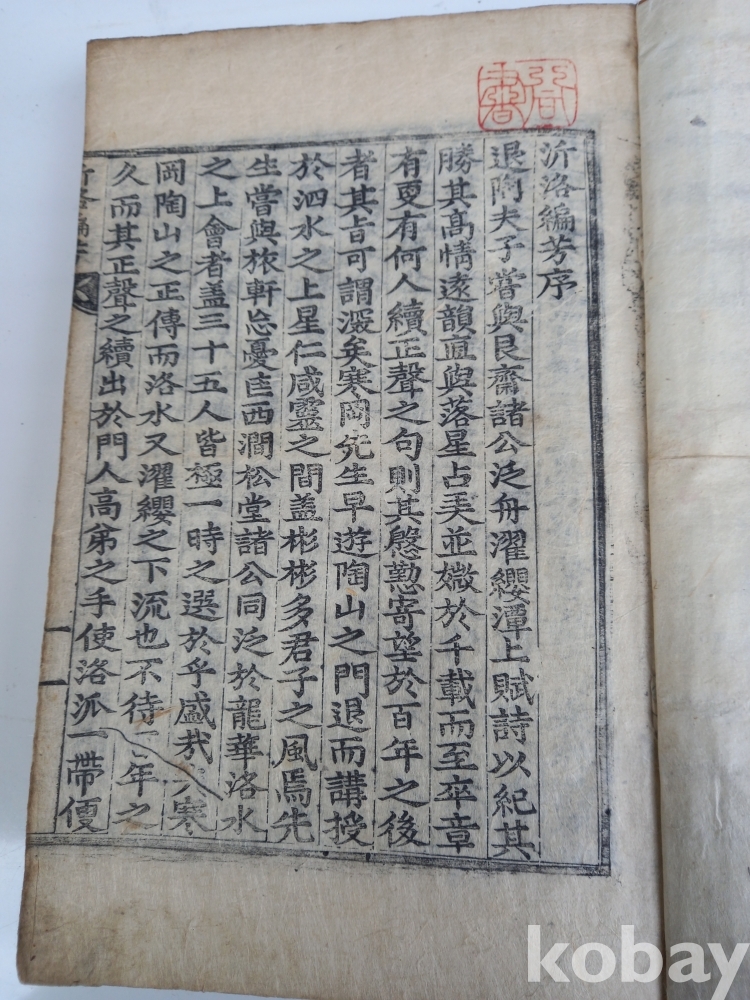 沂洛編芳序
退陶夫子嘗與艮齋諸公泛舟濯纓潭上賦詩以紀其
勝其高情遠韻直與落星占美並媺於千載而至卒章
有更有何人續正聲之句則其慇懃寄望於百年之後
者其旨可謂深矣寒岡先生早遊陶山之門退而講授
於泗水之上星仁咸靈之間盖彬彬多君子之風焉先
生嘗與旅軒忘憂匡西澗松堂諸公同泛於龍華洛水
之上會者盖三十五人皆極一時之選於乎盛哉寒
岡陶山之正傳而洛水又濯纓之下流也不待年之
久而其正聲之續出於門人高弟之手使洛派一帶便
沂洛編芳
一
kobay